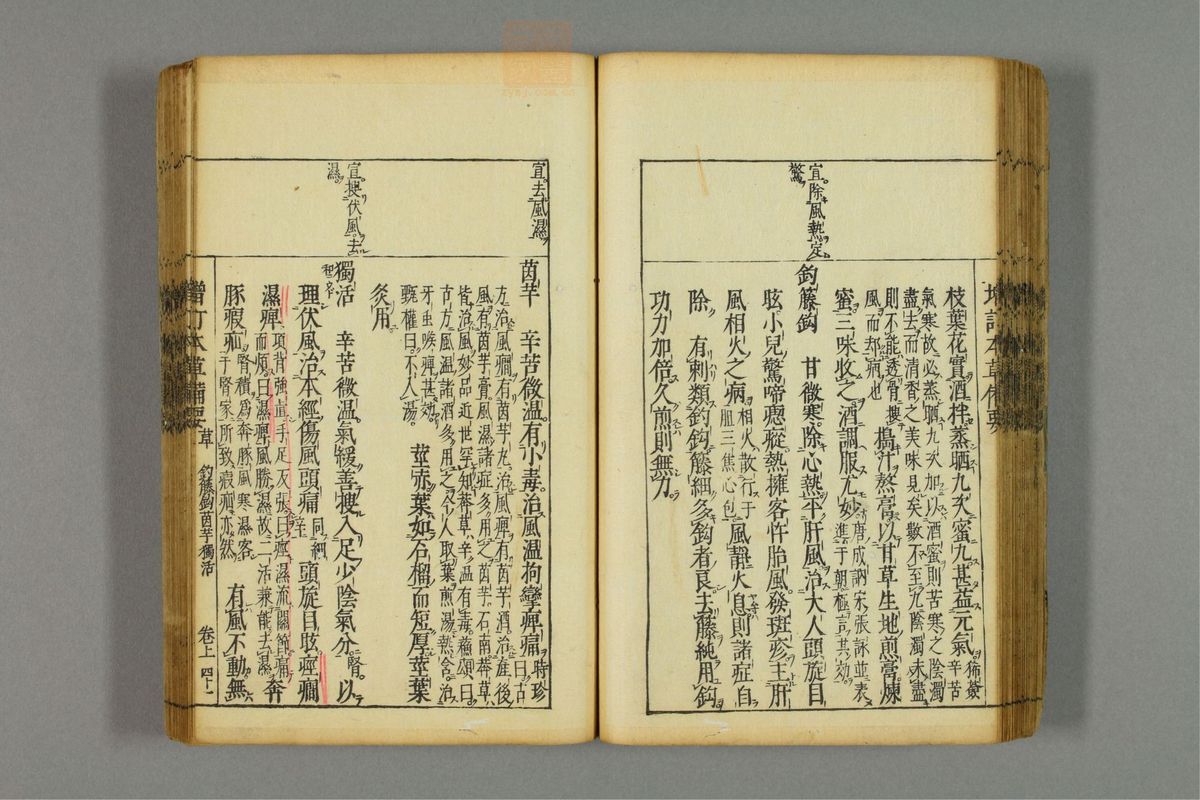 宜除風熱定
驚
枝葉花實酒拌蒸晒九次蜜丸甚益元氣豨薟辛苦
氣寒故必蒸晒九次加以酒蜜則苦寒之陰濁
盡去而清香之美味見矣數不至九陰濁未盡
則不能透骨搜
風而却病也
搗汁熬膏以甘草生地煎膏煉
蜜三味收之酒調服尤妙唐成訥宋張詠並表進于朝極言其効
鈎籐鈎 甘微寒除心熱平肝風治大人頭旋目
眩小兒驚啼瘛瘲熱擁客忤胎風發斑疹主肝
風相火之病相火散行于胆三焦心包風靜火息則諸症自
除 有刺類釣鈎籐細多鈎者良去藤純用鈎
功力加倍久煎則無力
宜去風濕
宜搜伏風去
濕
茵芋 辛苦微溫有小毒治風溫拘攣痺痛時珍曰古
方治風癇有茵芋丸治風痺有茵芋酒治產後
風有茵芋膏風濕諸症多用之茵芋石南莽草
皆治風妙品近世罕知莽草辛溫有毒蘓頌曰
古方風溫諸酒多用之今人取葉煎湯熱含治
牙虫喉痺甚効
甄權曰不入湯
莖赤葉如石榴而短厚莖葉
炙用
獨活 辛苦微溫氣緩善搜入足少陰氣分腎以
理伏風治本經傷風頭痛同細辛頭旋目眩痙癇
濕痺項背強直手足反張曰痙濕流關節痛而煩曰濕痺風勝濕故二活兼能去濕奔
豚瘕疝腎積爲奔豚風寒濕客于腎家所致瘕疝亦然 有風不動無
增訂本草備要 草 鈎藤鈎茵芋獨活 卷上 四十